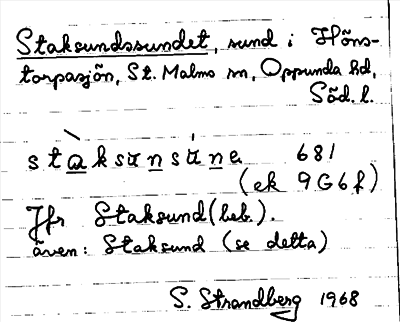 Staksundssundet, sund i Höns-
torpasjön, St. Malms sn, Oppunda hd,
Söd. l.
stàksun̲sún̲e 681
(ek 9G6f)
Jfr Staksund (beb.).
även: Staksund (se detta)
S. Strandberg 1968